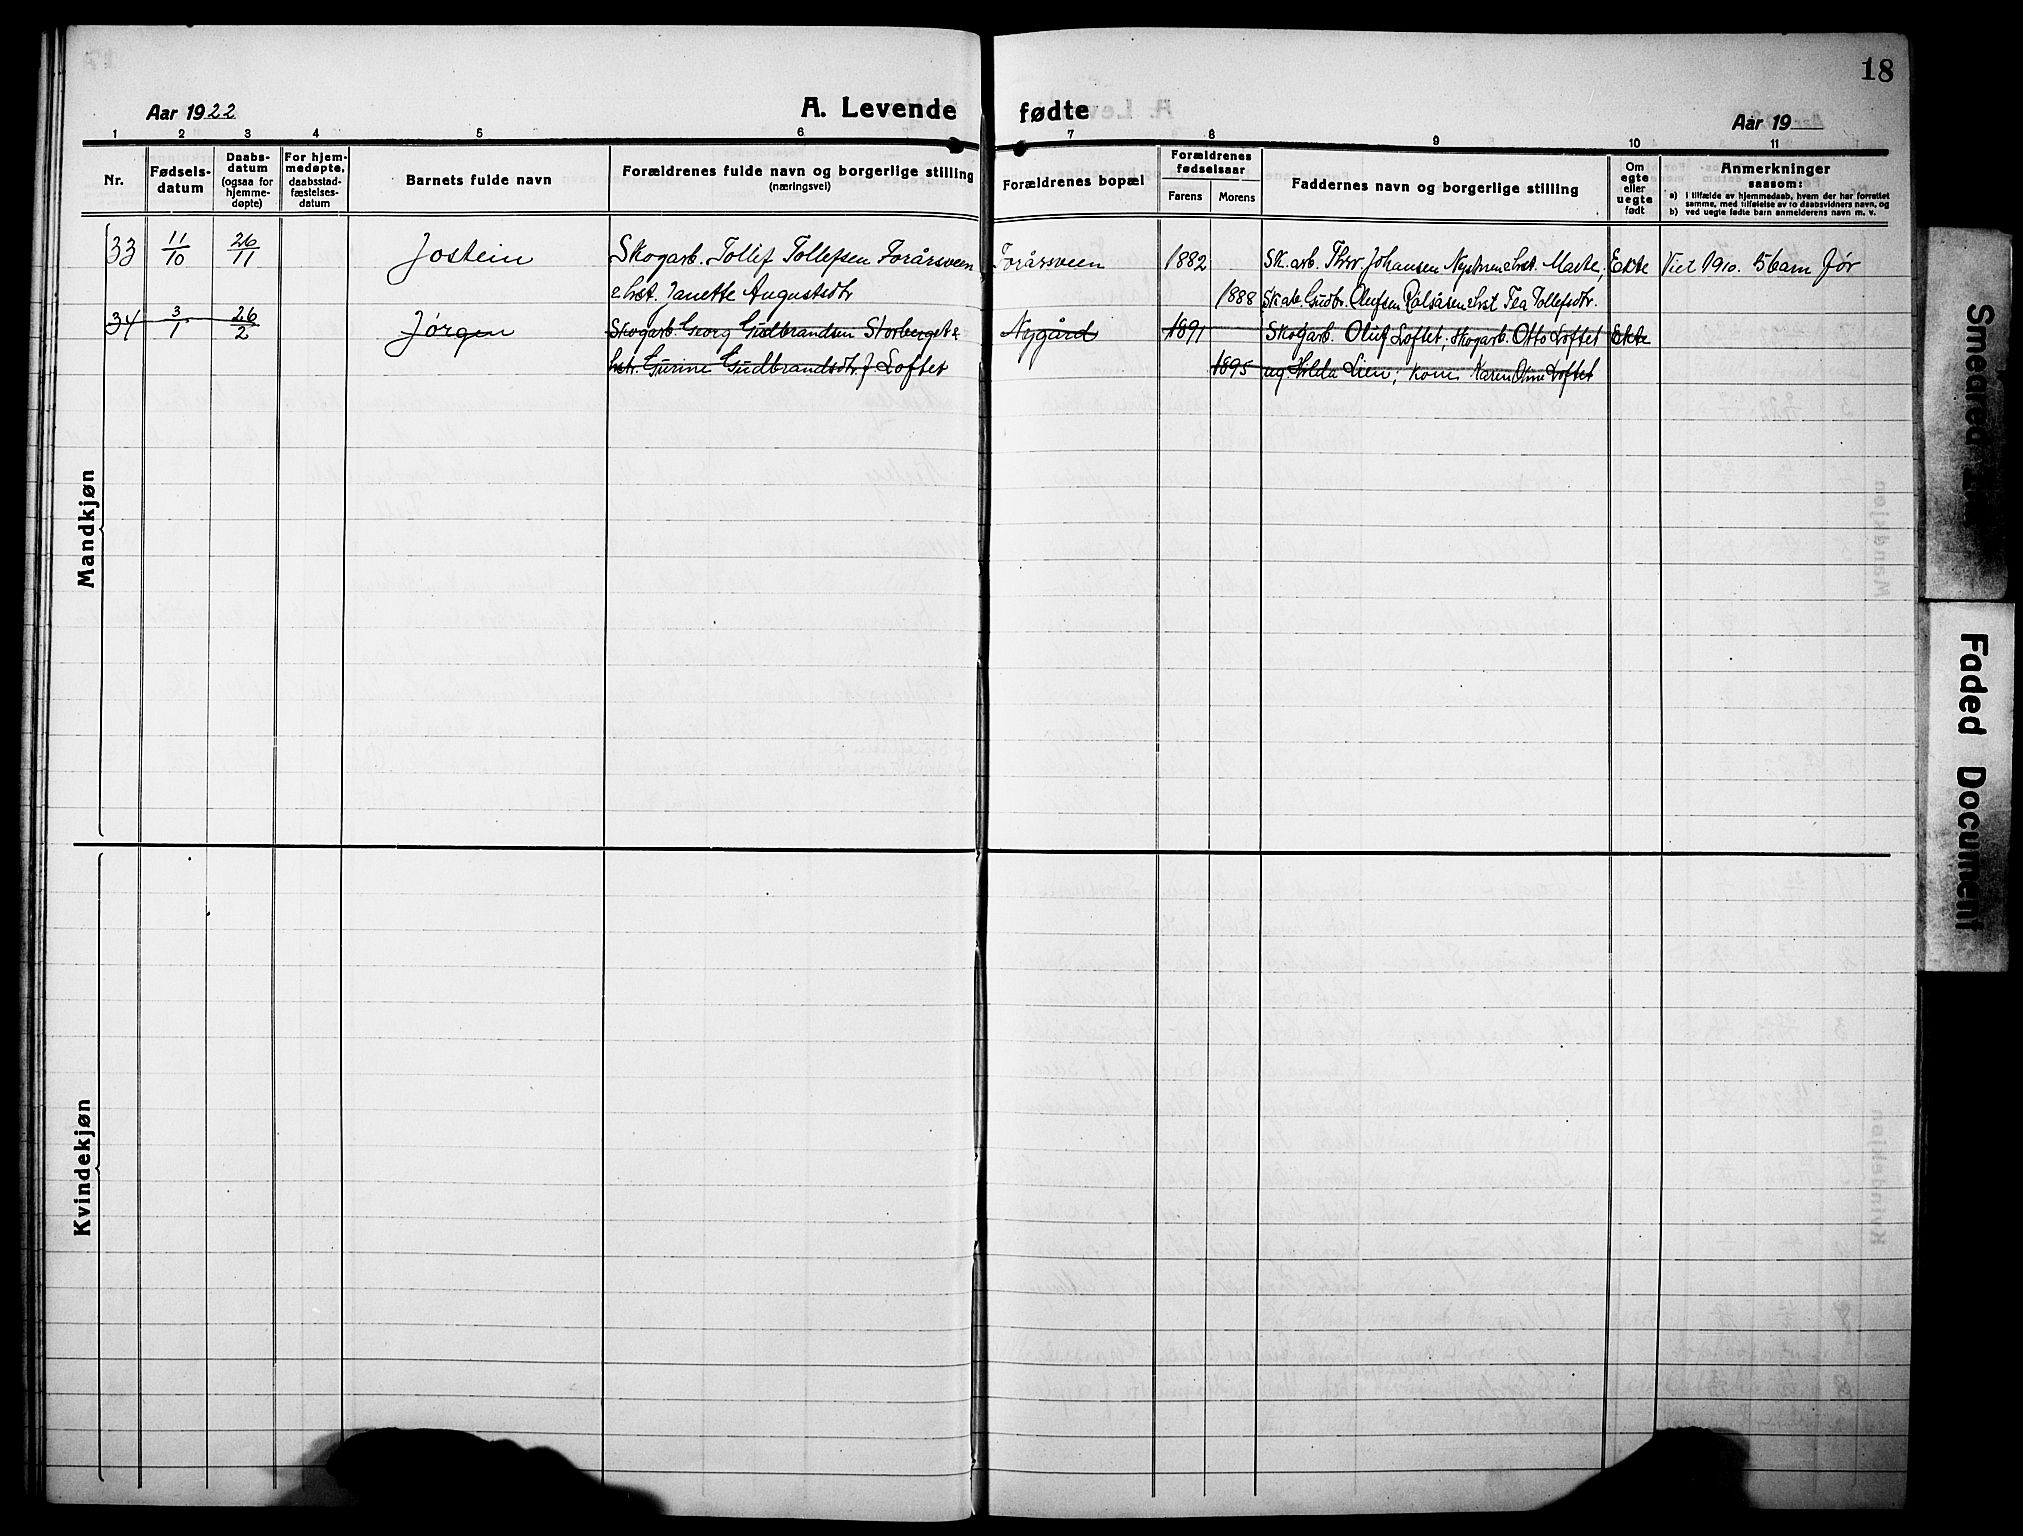 18
Aar 1922
A. Levende fødte
Aar 19
1 2 3 4 5 6 7 8 9 10 11
Nr.
Fødsels-
datum
Daabs-
datum
(ogsaa for
hjemme-
døpte)
For hjem-
medøpte,
daabsstad-
fæstelses-
datum
Barnets fulde navn
Forældrenes fulde navn og borgerlige stilling
(næringsvei)
Forældrenes bopæl
Forældrenes
fødselsaar
Farens Morens
Faddernes navn og borgerlige stilling
Om
egte
eller
uegte
født
Anmerkninger
saasom:
a) I tilfælde av hjemmedaab, hvem der har forrettet
samme, med tilføielse av to daabsvidners navn, og
b) ved uegte fødte barn anmelderens navn m. v.
Mandkjøn
33 11/10 26/11 Jostein Skogarb. Tollef Tollefsen Forårsveen Forårsveen 1882 Sk.arb. Thrv Johansen Marte; Ekte Viet 1910. 5 barn før
e hst. Janette Augustsdtr 1888 Sk.arb. Gudbr. Olufsen Rålsåsen e hst Tea Tollefsdtr.
34 3/1 26/2 Jørgen Skogarb. Georg Gudbrandsen Storberget e Nygård 1891 Skogarb. Oluf Loftet; skogarb. Otto Loftet Ekte
hst. Gurine Gudbrandsdtr. f Loftet 1895 ug Hilda Lien; kone Karen Oline Loftet
Kvindekjøn
Smeared Ink
Faded Document